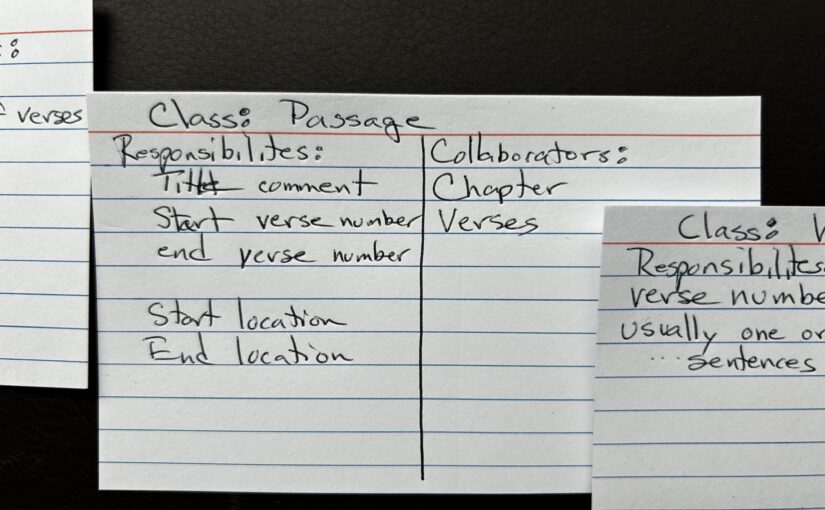 verses
Class: Passage
Responsibilites:
comment
Start verse number
end verse number
Start location
End location
Collaborators:
Chapter
Verses
Class: V
Responsibilites
verse numbe
usually one or
... sentences